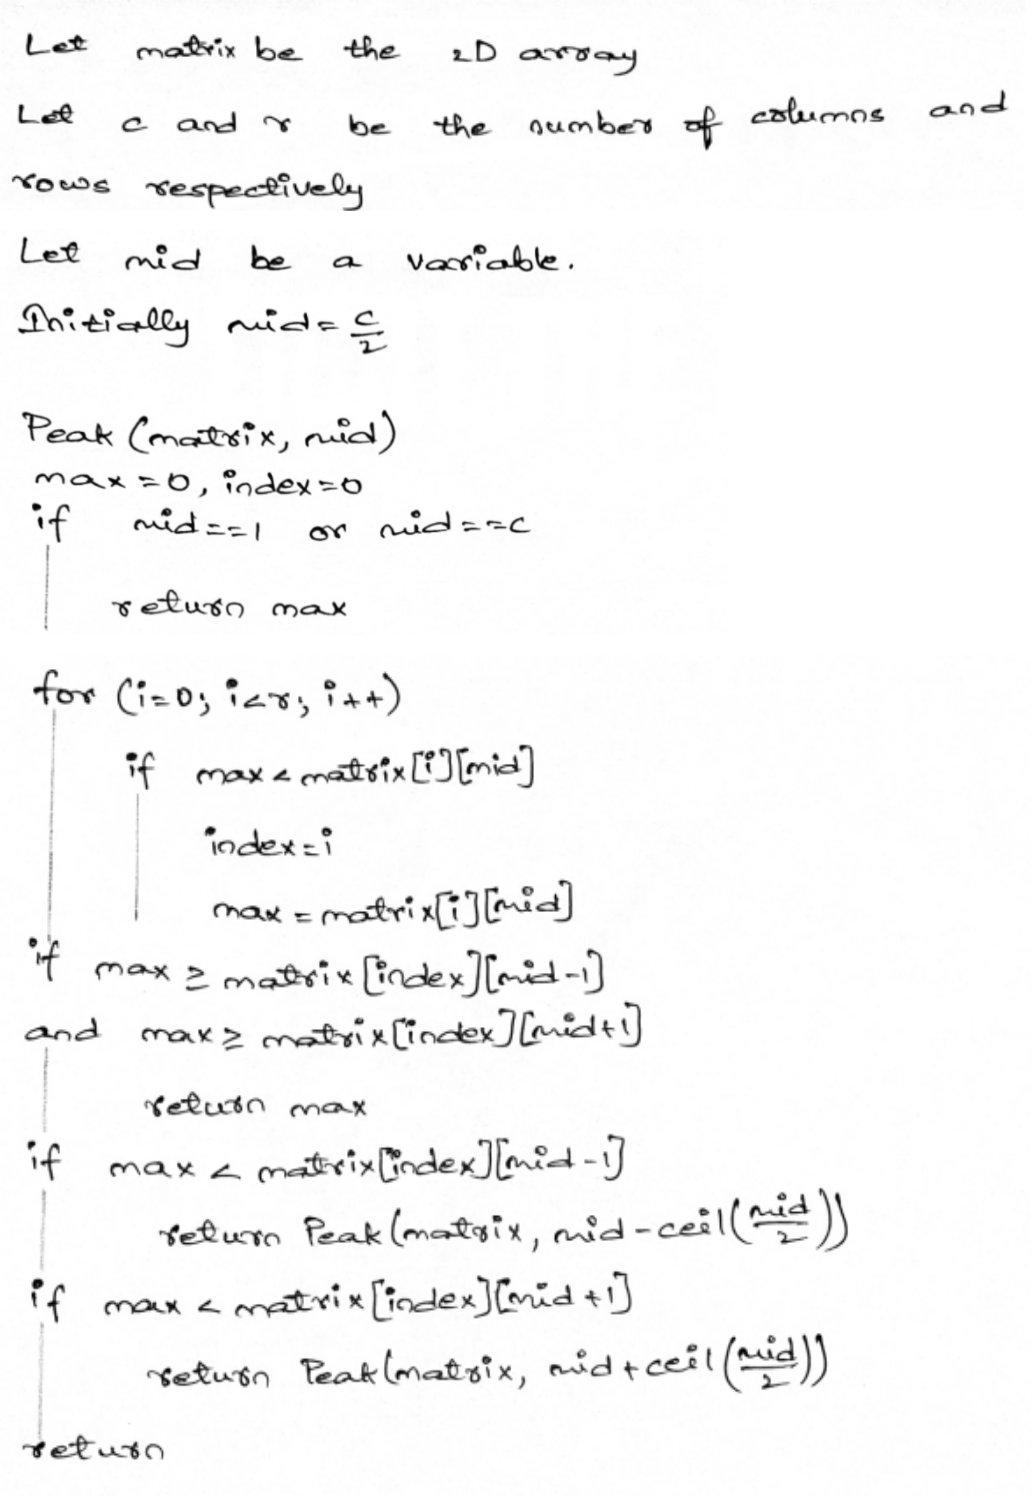 Let matrix be the 2D array
Let c and r be the number of columns and
rows respectively
Let mid be a variable.
Initially mid = c/2
Peak (matrix, mid)
max = 0, index = 0
if mid == 1 or mid == c
return max
for (i=0; i<r; i++)
if max < matrix[i][mid]
index = i
max = matrix[i][mid]
if max ≥ matrix [index][mid-1]
and max ≥ matrix[index][mid+1]
return max
if max < matrix[index][mid-1]
return Peak(matrix, mid - ceil(mid/2))
if max < matrix[index][mid+1]
return Peak(matrix, mid + ceil(mid/2))
return